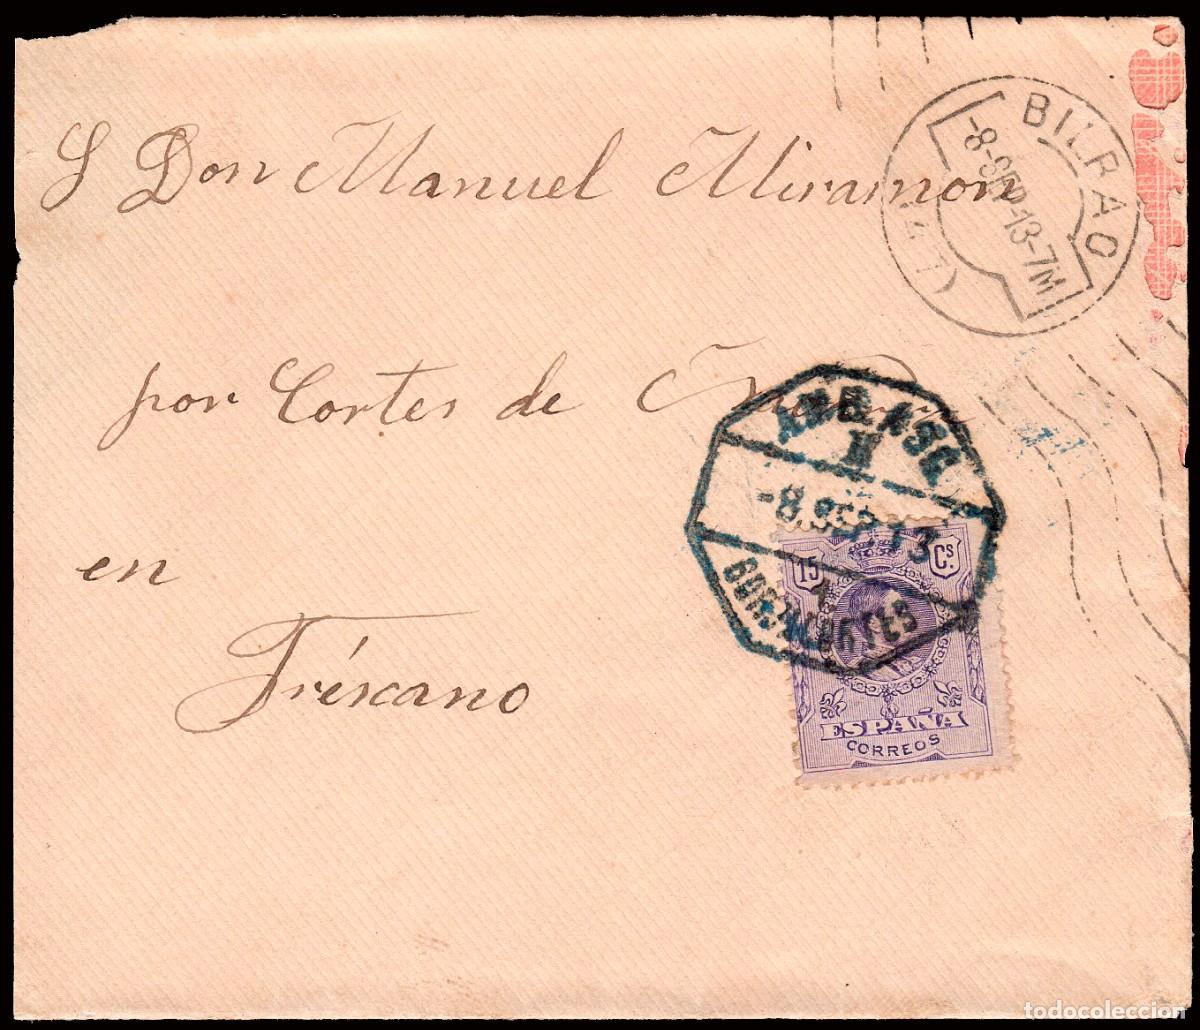 S Don Manuel Miramon
por Cortes de
en
Tréscano
BILBAO
-8-SEP-13-7M
AMB. ASC
-8 SEP 13
15 Cs
ESPAÑA
CORREOS
todocoleccion